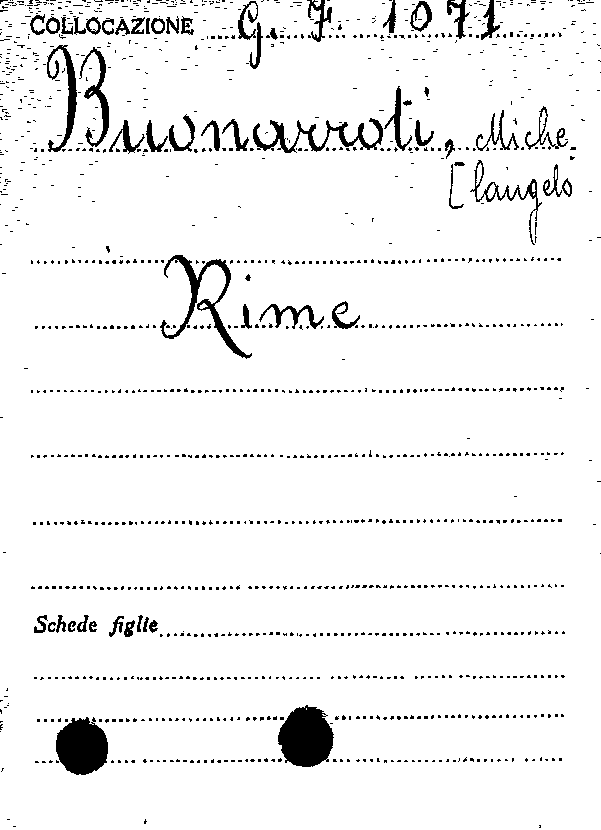 COLLOCAZIONE G. F. 1071
Buonarroti, Miche
[langelo
Rime
Schede figlie